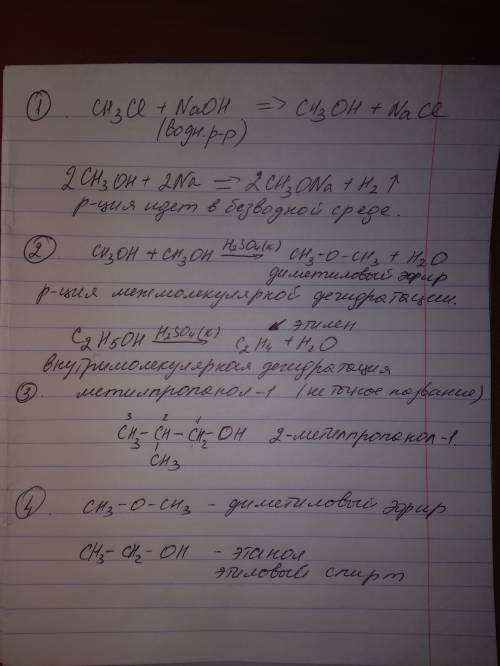 ① CH3Cl + NaOH => CH3OH + NaCl
(водн. р-р)
2CH3OH + 2Na => 2CH3ONa + H2↑
р-ция идет в безводной среде.
② CH3OH + CH3OH H2SO4(к) → CH3-O-CH3 + H2O
диметиловый эфир
р-ция межмолекулярной дегидратации.
этилен
C2H5OH H2SO4(к) → C2H4 + H2O
внутримолекулярная дегидратация
③. метилпропанол-1 (не точное название)
3 2 1
CH3-CH-CH2-OH 2-метилпропанол-1.
CH3
④ CH3-O-CH3 - диметиловый эфир
CH3-CH2-OH - этанол
этиловый спирт